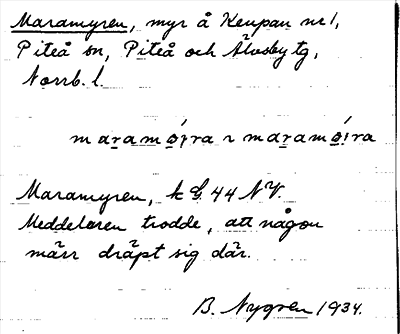 Maramyren, myr å Keupan nr 1,
Piteå sn, Piteå och Älvsby tg,
Norrb. l.
Maramyren, k G. 44 NV.
Meddelaren trodde, att någon
märr dräpt sig där.
B. Nygren 1934.